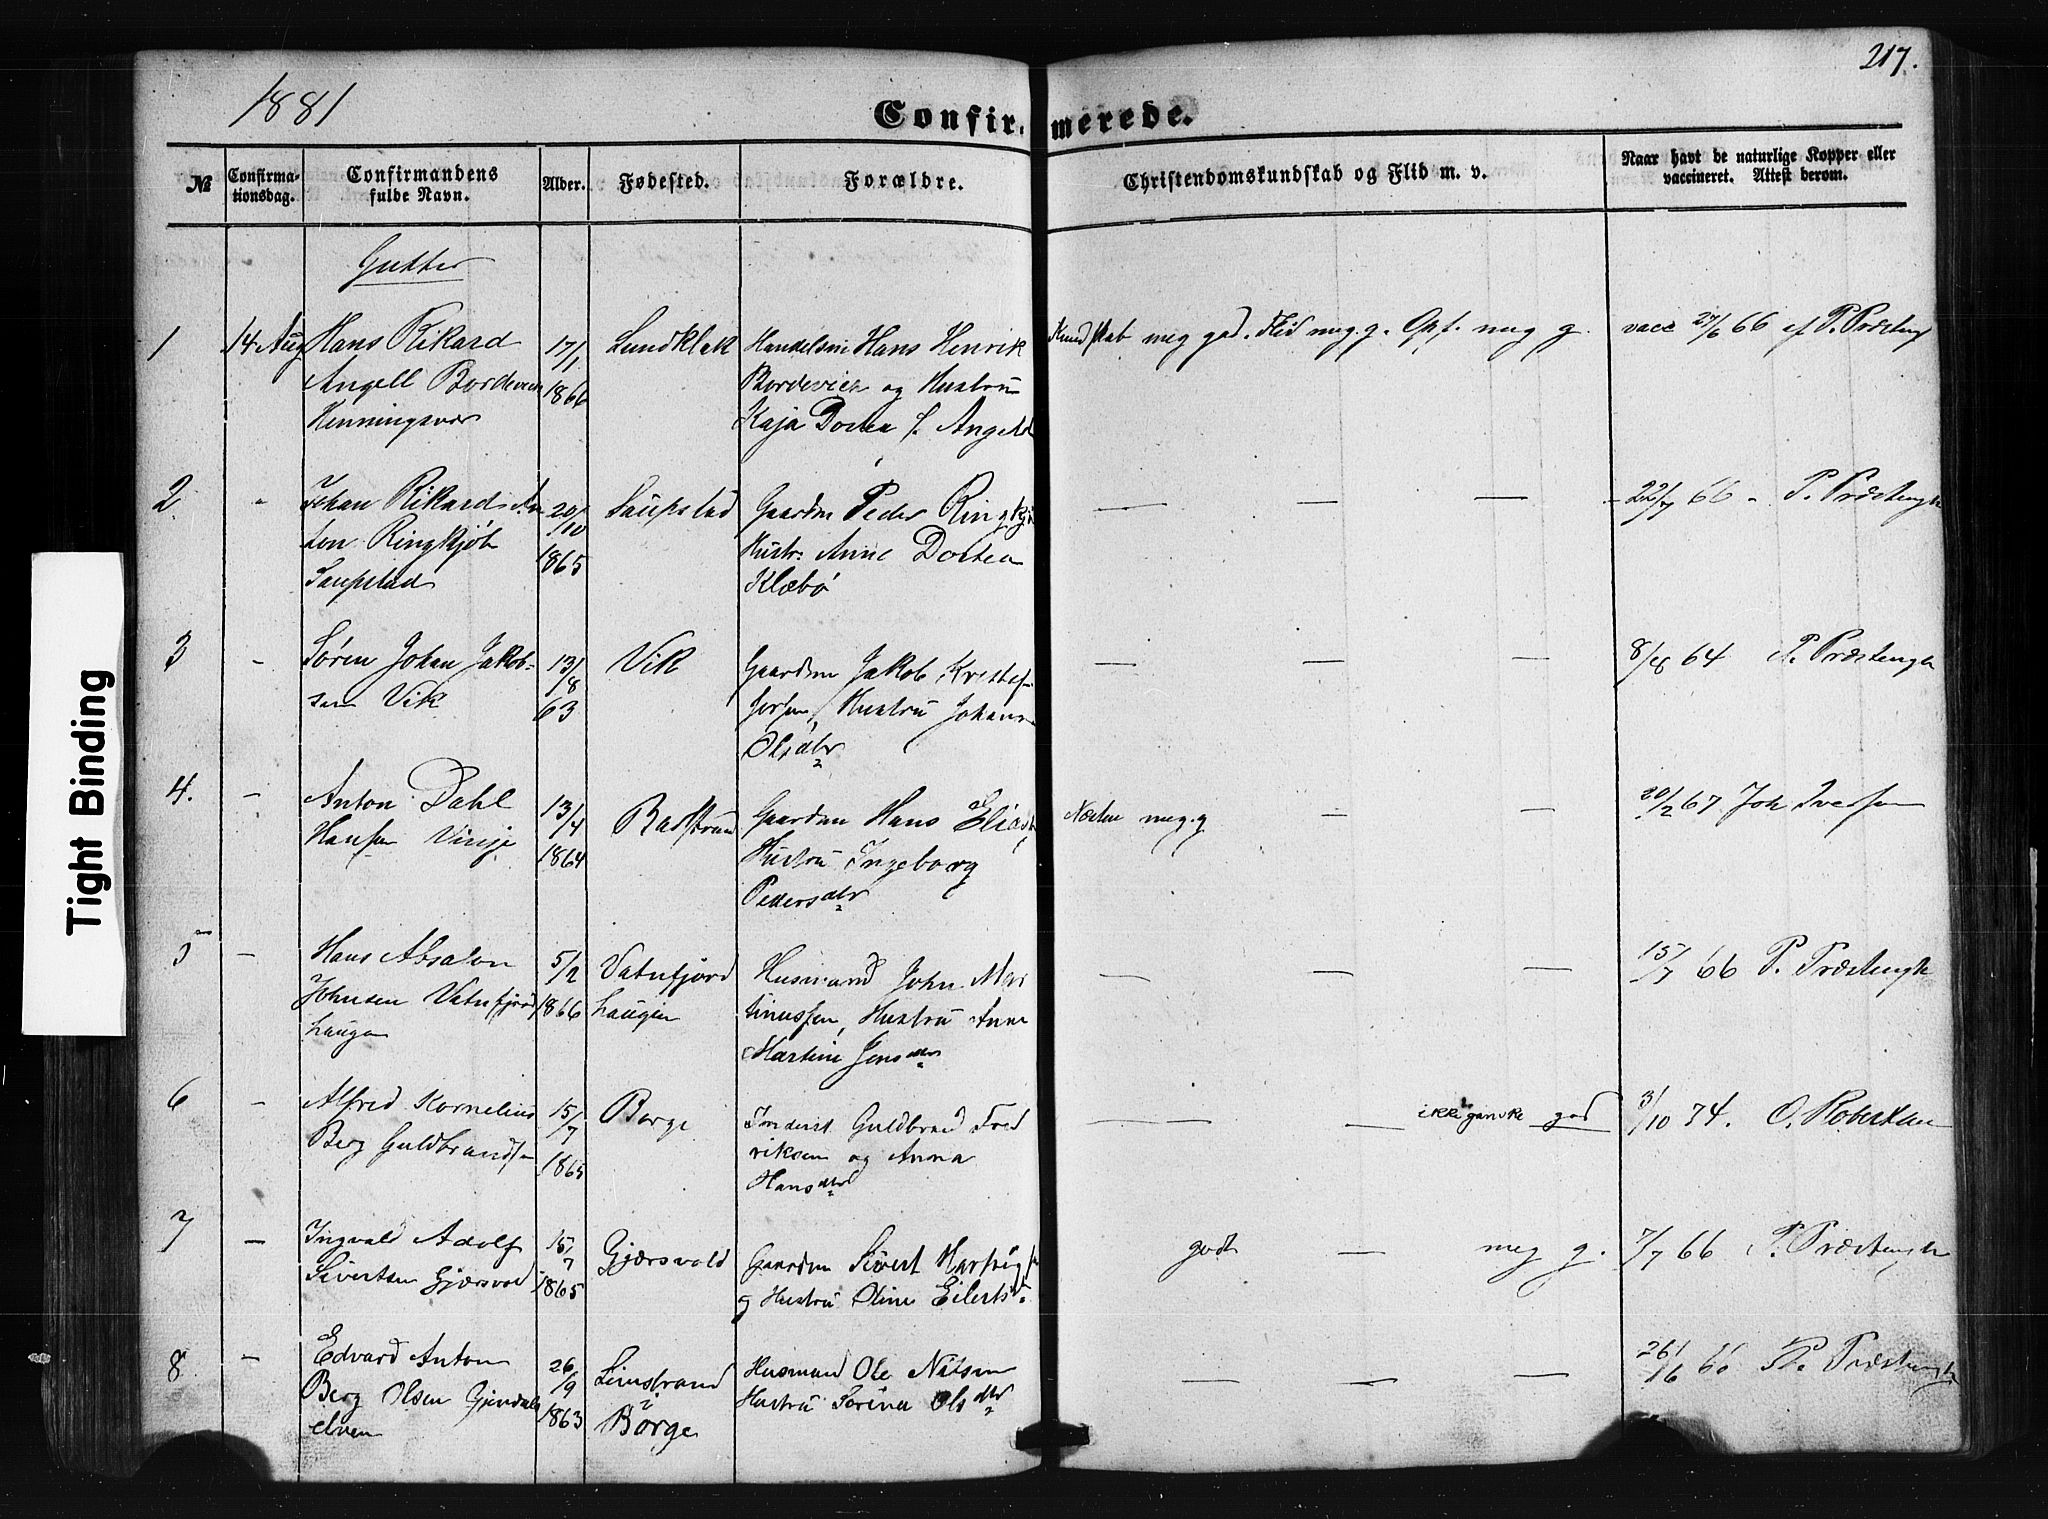 217.
1881
Confirmerede.
№
Confirma-
tionsdag.
Confirmandens
fulde Navn.
Alder.
Fødested.
Forældre.
Christendomskundskab og Flid m. v.
Naar havt de naturlige Kopper eller
vaccineret. Attest derom.
Gutter
1 14 Aug Hans Rikard 17/1 Lundklak Handelsm Hans Henrik Kundskab meg god. Flid meg. g. Opf. meg g. vacc 27/6 66 af P. Præsteng
Angell Bordevick 1866 Bordevick og Hustru
Henningsvær Kaja Dortea f. Angell
2 - Johan Rikard An 20/10 Saupstad Gaardm Peder Ringkjø — — — 22/7 66 - P. Præstengk
ton Ringkjøb 1865 Hustr. Anne Dortea
Saupstad Klæbø
3 - Søren Johan Jakob- 13/8 Vik Gaardm Jakob Kristof — — — 8/8 64 P. Præstengk
sen Vik 63 fersen, Hustru Johanna
Olsdtr
4. - Anton Dahl 13/4 Gaardm Hans Elias Næsten meg. g — — 20/2 67 Joh Iversen
Hansen Vinje 1864 Hustru Ingeborg
Pedersdtr
5 - Hans Absalon 5/2 Vatnfjord Husmand John Mar — — — 15/7 66 P. Præstengk
Johnsen Vatnfjord 1866 haugen tinussen, Hustru Anne
haugen Martine Jensdtr
6 - Alfred Kornelius 15/7 Borge Inderst Guldbrand Fred — — — ikke ganske god 3/10 74. O. Robertsen
Berg Guldbrandsen 1865 riksen og Anna
Hansdtr
7 - Ingvald Adolf 15/7 Gjærsvold Gaardm Sivert Hartvigs godt — meg g. 7/7 66 P. Præstengk
Sivertsen Gjærsvold 1865 og Hustru Oline Eilertsd
8. - Edvard Anton 26/9 Limstrand Husmand Ole Nilsen — — — 26/6 66 P. Præstengk
Berg Olsen Gjendals 1863 i Hustru Sorine Olsdtr
elven Borge
Tight Binding